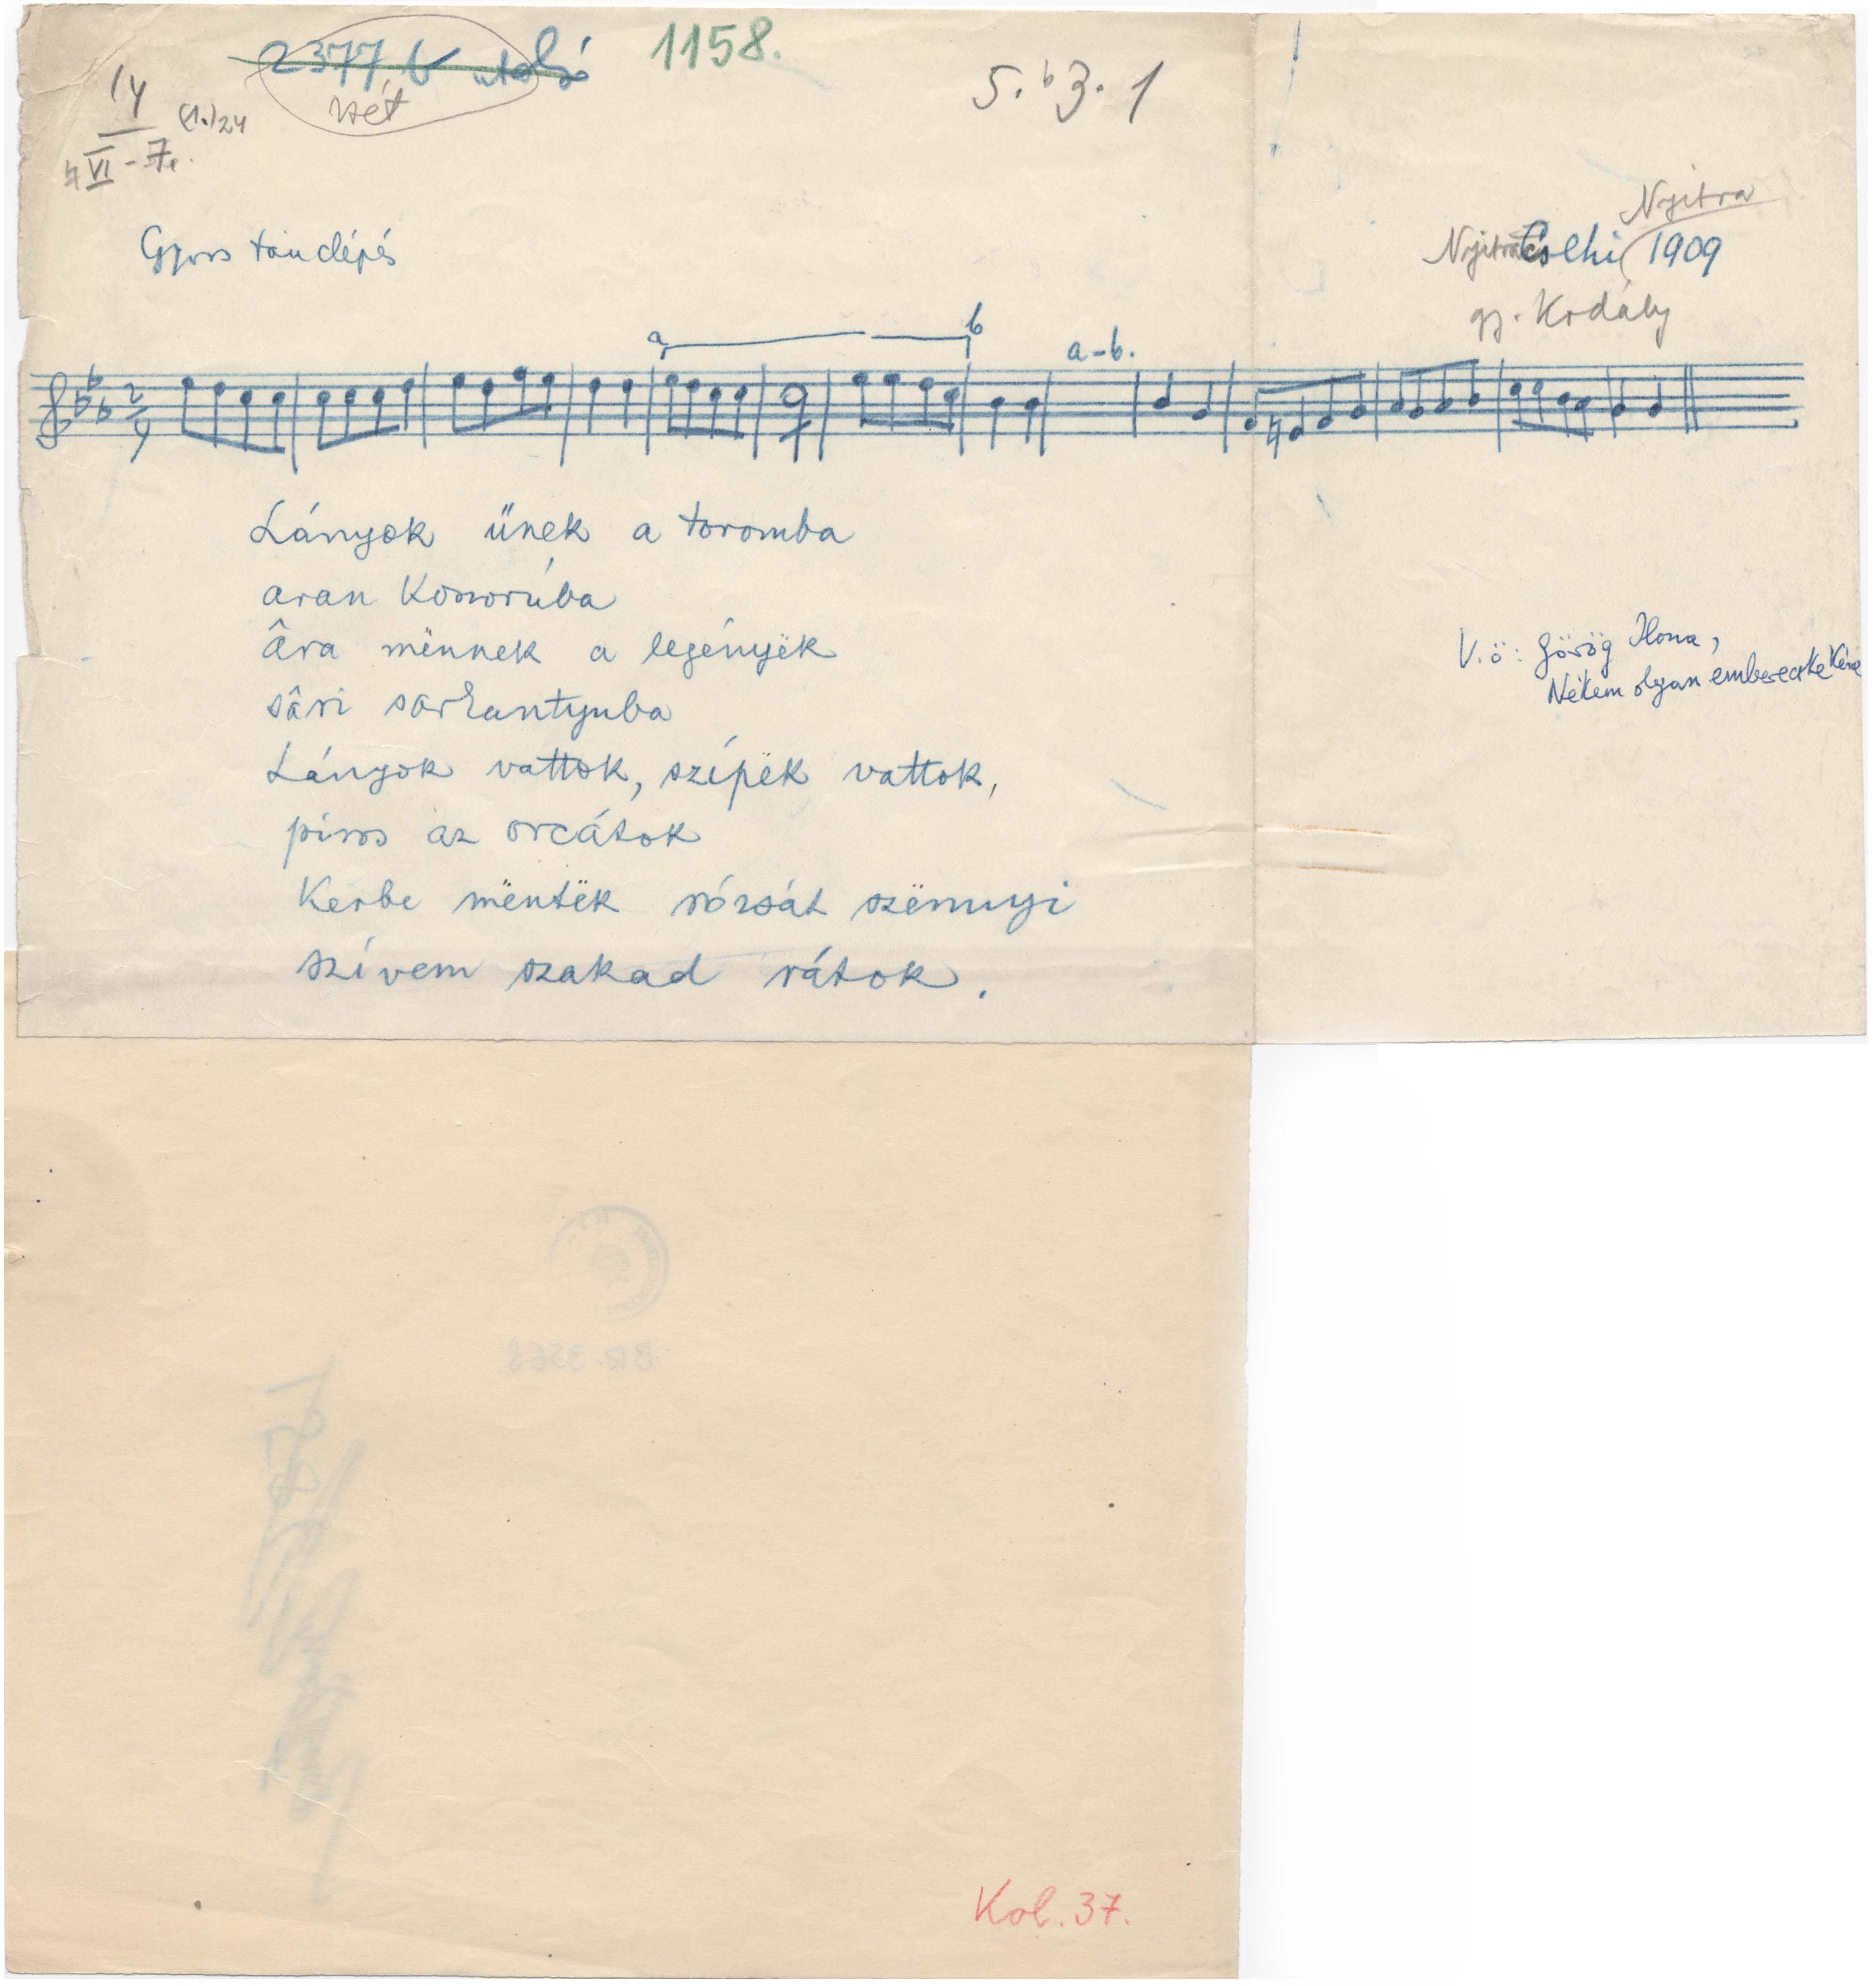 2377 b utolsó 1158.
vét
5. b3. 1
14
(1.) 24
VI - 7.
Nyitra
Gyors tánclépés
Nyitra Csehi 1909
gy. Kodály
a b
a-b.
2
4
Lányok űnek a toromba
aran koszorúba
âra mënnek a legényëk
sâri sarkantyuba
V.ö: Görög Ilona,
Nékem olyan emberecske kéne
Lányok vattok, szípëk vattok,
piros az orcátok
Kerbe mëntëk rózsát szënnyi
szívem szakad rátok.
BR 3368
Kol. 37.